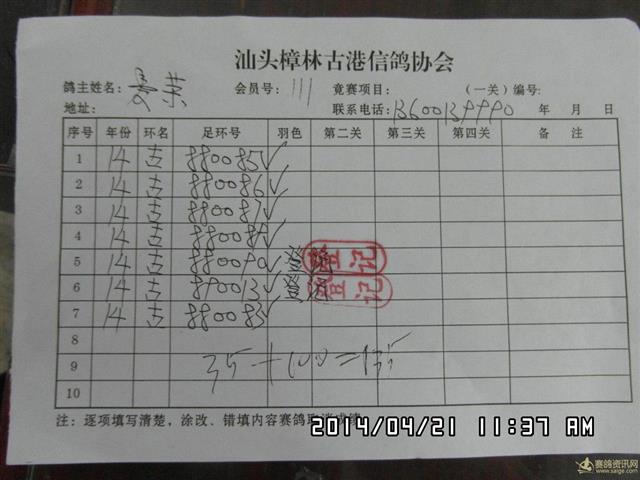 汕头樟林古港信鸽协会
鸽主姓名: 会员号: 111 竞赛项目: (一关)编号:
地址: 联系电话: 13600139990 年 月 日
序号 年份 环名 足环号 羽色 第二关 第三关 第四关 备 注
1 14 古 880085 ✓
2 14 古 880086 ✓
3 14 古 880087 ✓
4 14 古 ✓
5 14 古 880090 ✓ 登记
6 14 古 ✓ 登记
7 14 古 880083 ✓
8
9 35+100=135
10
注:逐项填写清楚,涂改、错填内容赛鸽取消成绩
2014/04/21 11:37 AM
赛鸽资讯网
www.saige.com